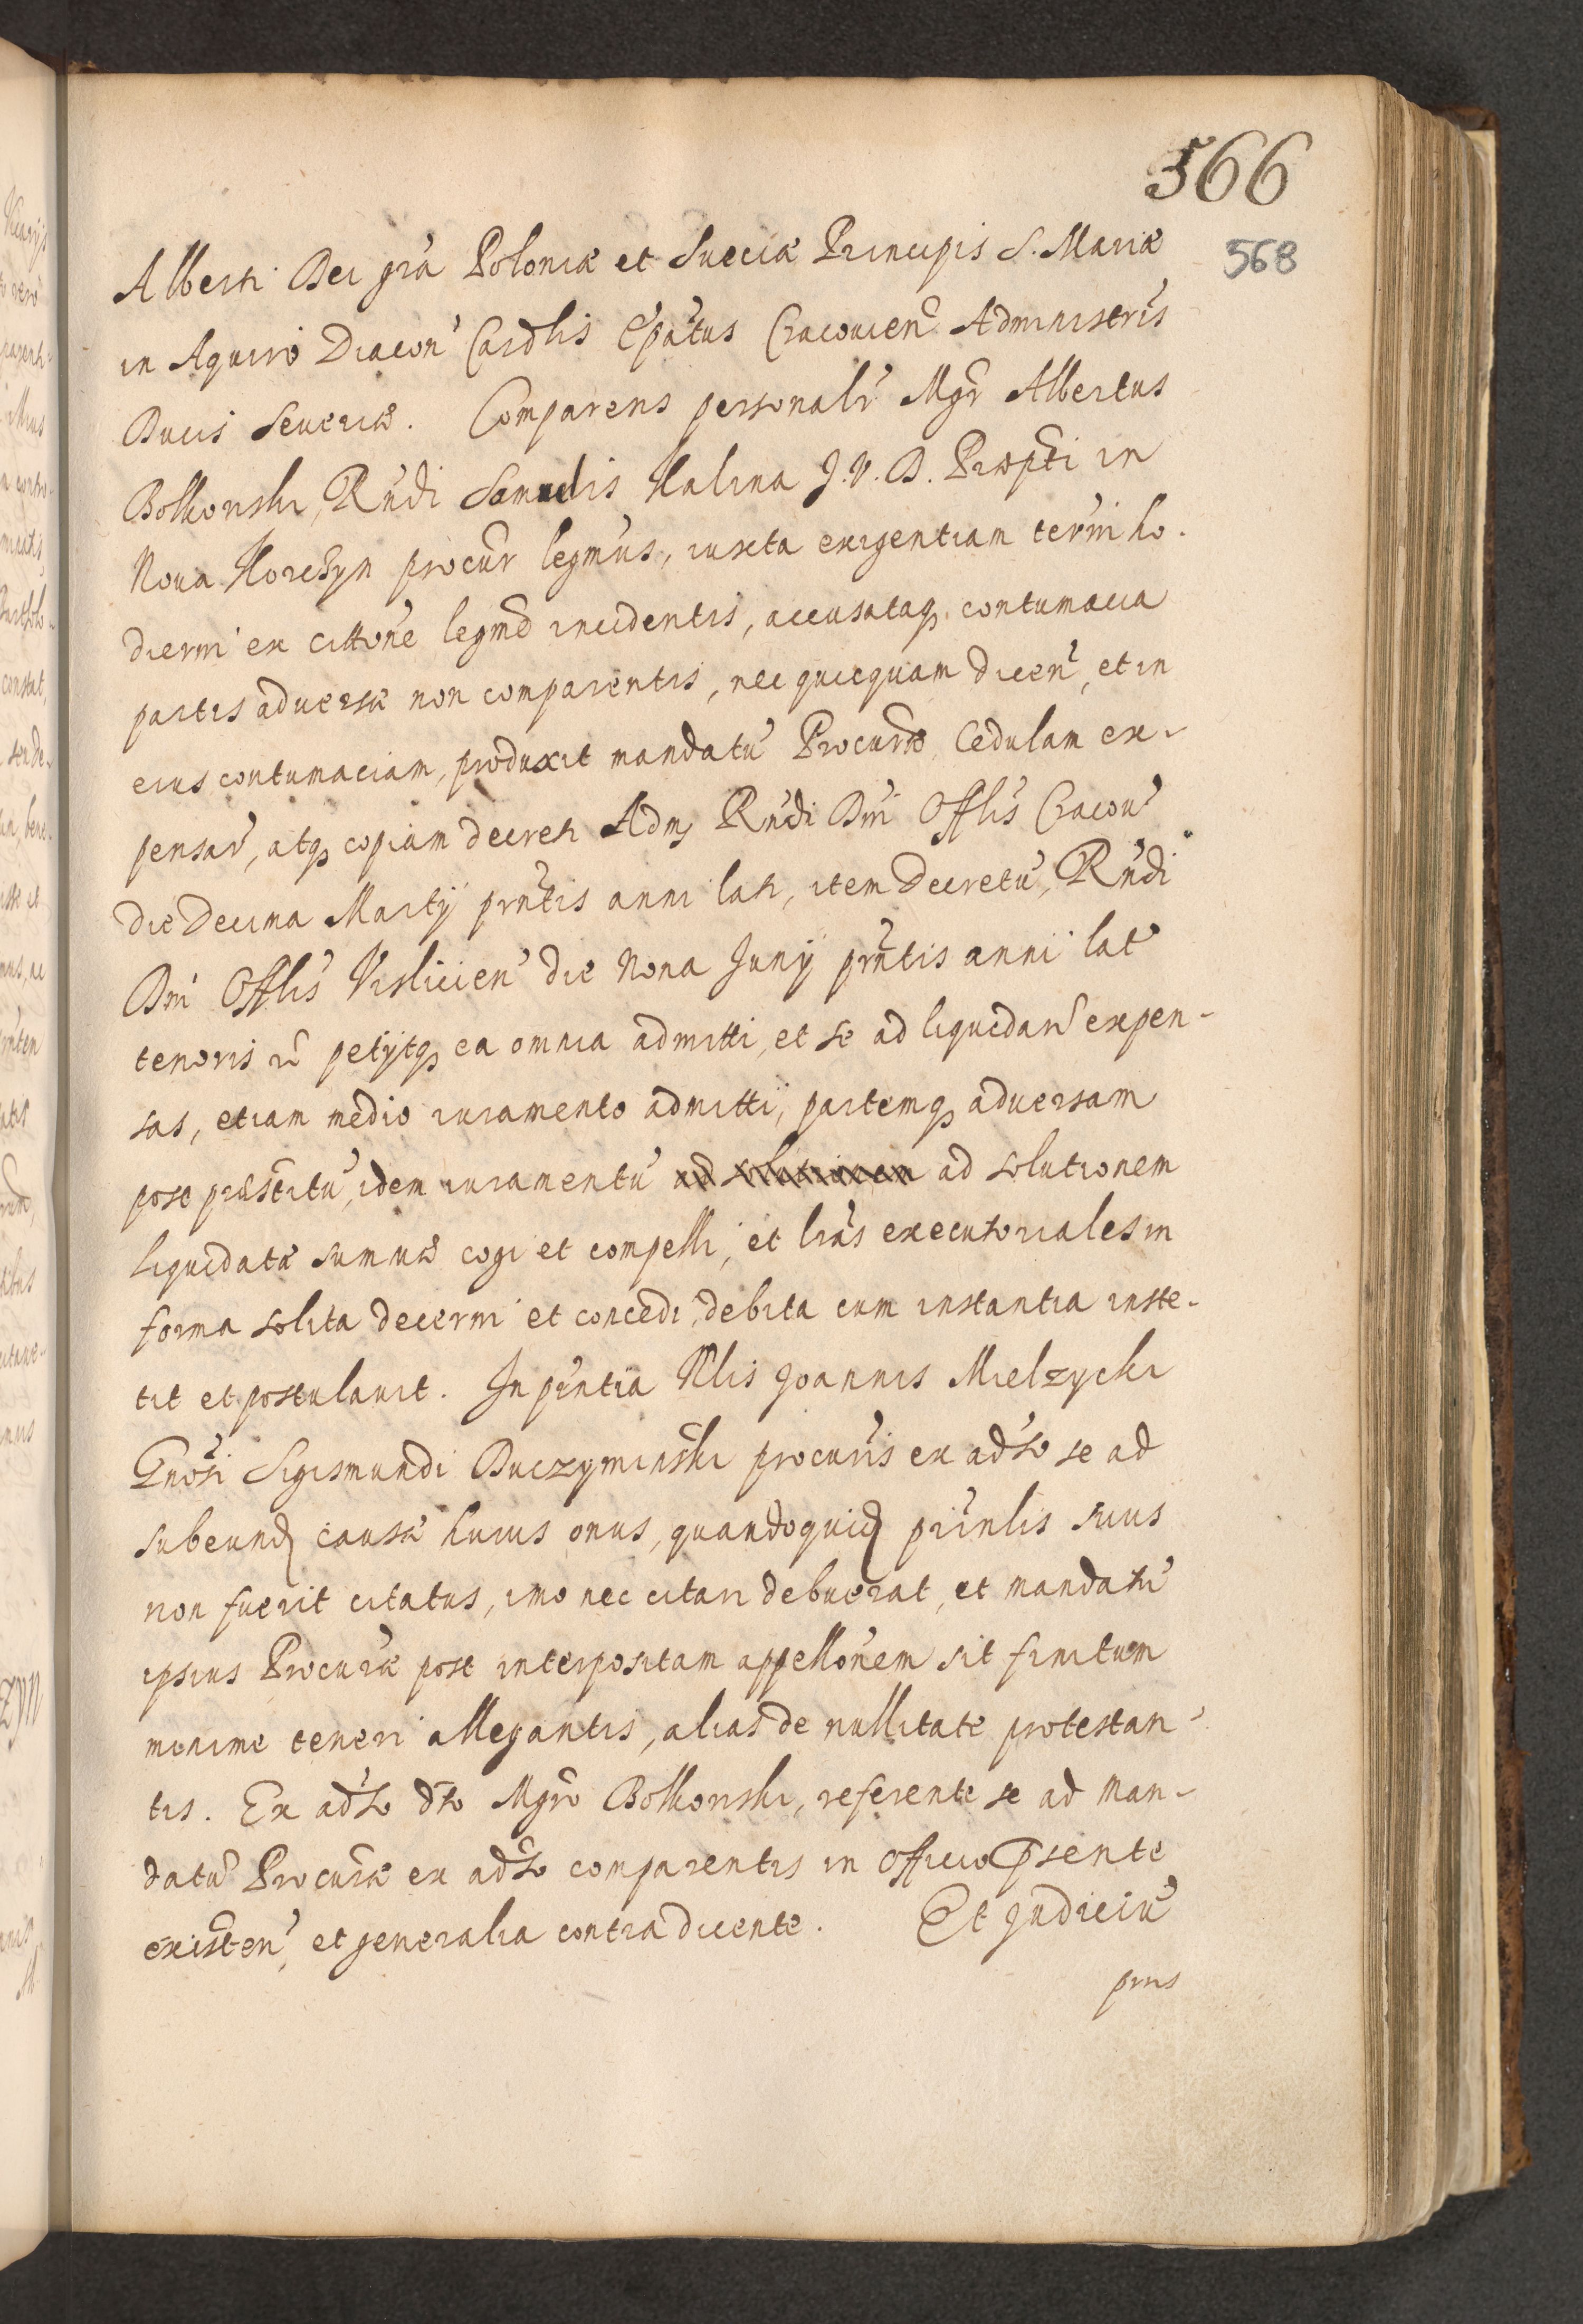 566
568
Alberti Dei gra Poloniæ et Sueciæ Principis S. Mariæ
in Aquiro Diacon Cardlis Epatus Cracouien Administris
Ducis Seueriæ. Comparens personalr Mgr Albertus
Bolkonski, Rndi Samuelis Kalina J. V. D. Præpti in
Noua Korczyn procur legmus, iuxta exigentiam termi ho-
dierni ex cittone legme incidentis, accusataq contumacia
partis aduersæ non comparentis, nec quicquam dicen, et in
eius contumaciam, produxit mandatu Procuræ Cedulam ex-
pensar, atq copiam decreti Adm Rndi Dni Offlis Cracou
die Decima Martij prntis anni lati, item Decretu, Rndi
Dni Offlis Vislicien die Nona Junij prntis anni lat
tenoris rc petijtq ea omnia admitti, et se ad liquidan expen-
sas, etiam medio iuramento admitti, partemq aduersam
post præstitu, idem iuramentu ad solutionem ad solutionem
liquidatæ summæ cogi et compelli, et lras executoriales in
forma solita decerni et concedi, debita cum instantia inste-
tit et postulauit. In pntia Nlis Joannis Mielzycki
Gnosi Sigismundi Buczyminski procuris ex adso se ad
subeund causæ huius onus, quandoquid prinlis suus
non fuerit citatus, imo nec citari debuerat, et mandatu
ipsius Procuræ post interpositam appellonem sit finitum
minime teneri allegantis, alias de nullitate protestan-
tis. Ex adso dto Mgro Bolkonski, referente se ad Man-
datu Procuræ ex adso comparentis in officio psente
existen, et generalia contradicente. Et Judiciu
prns